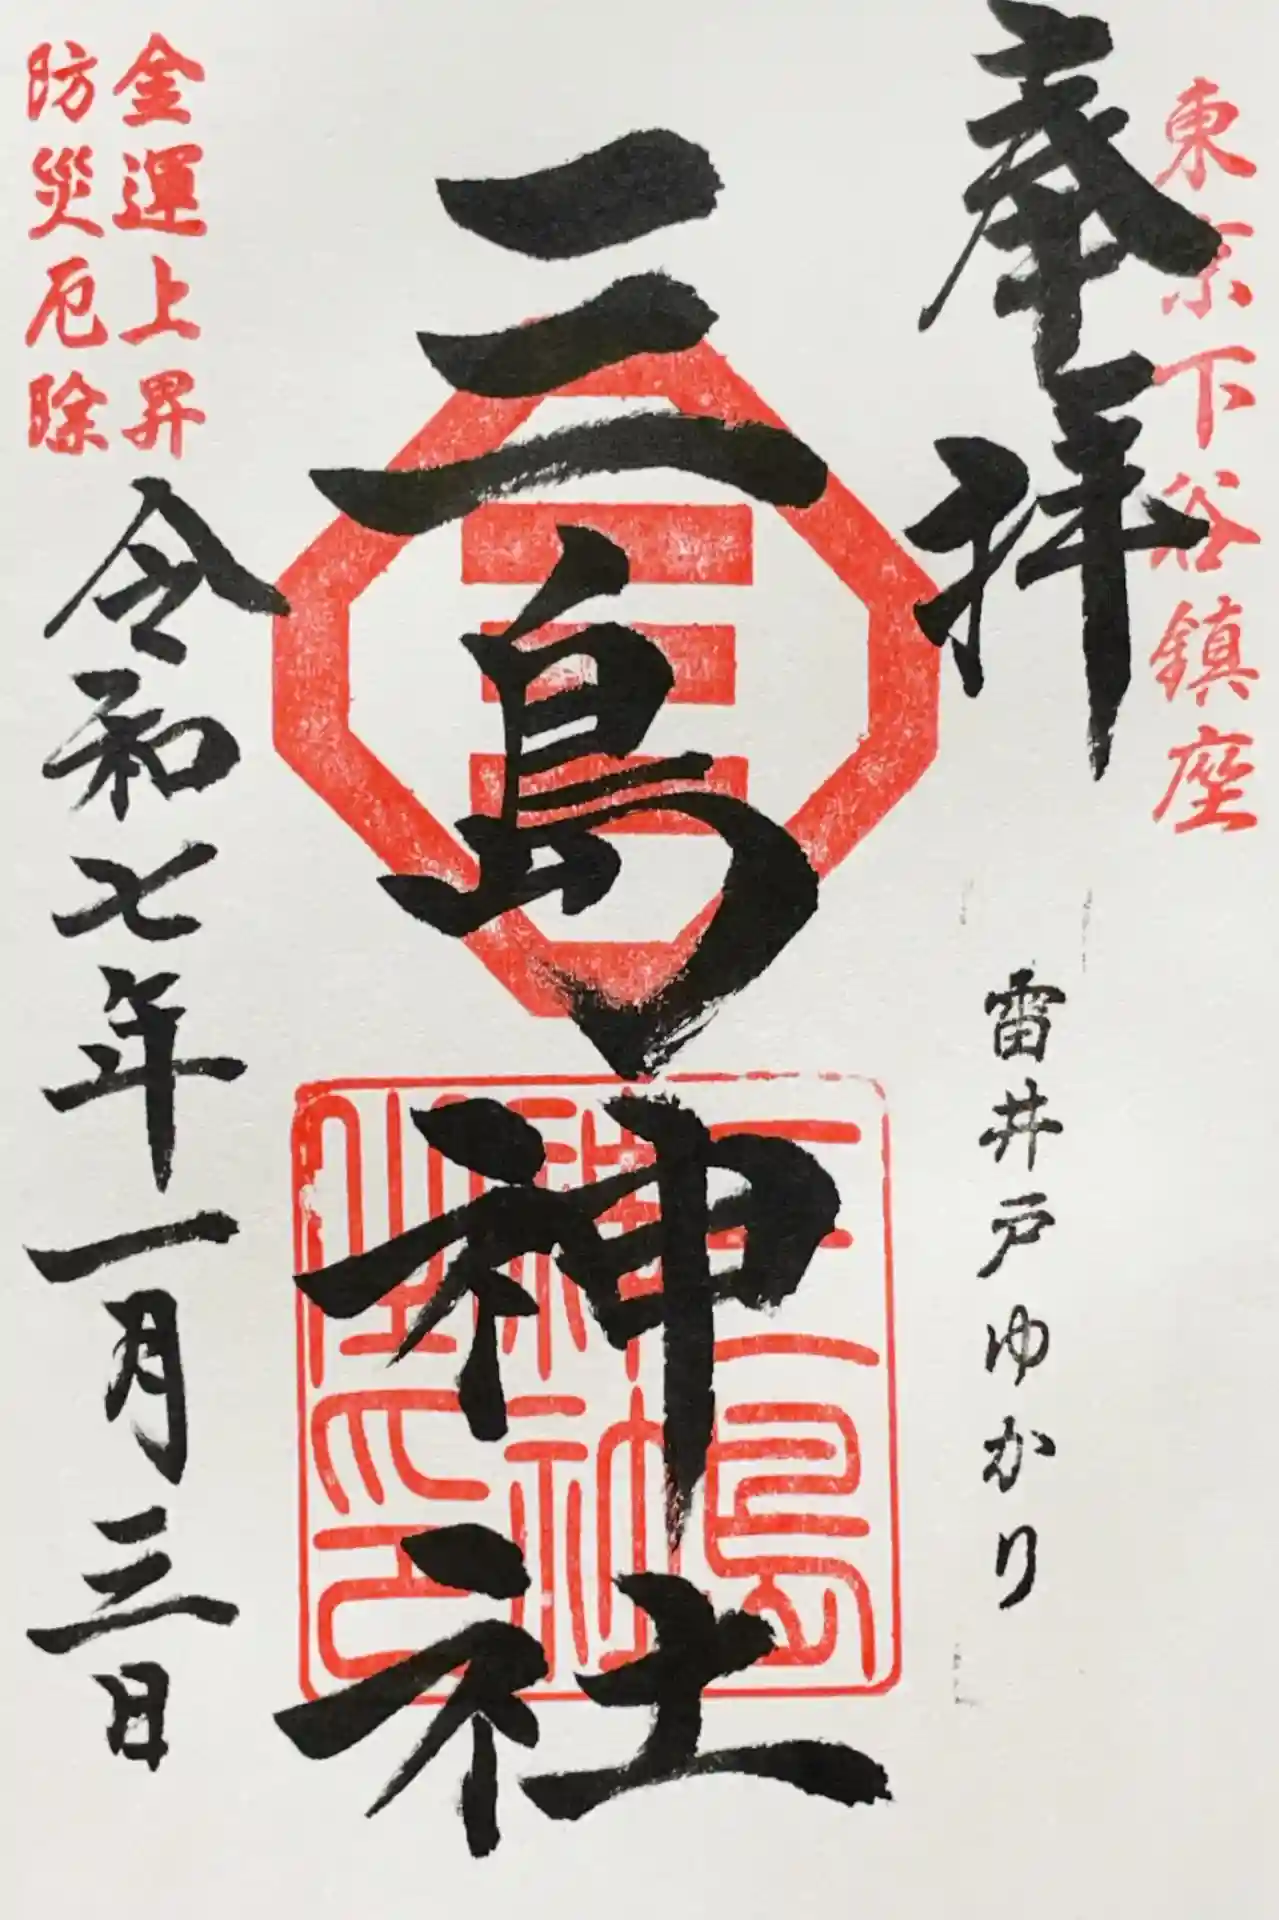 東京下谷鎮座
奉拝
雷井戸ゆかり
三島神社
三島
神社
之印
金運上昇
防災厄除
令和七年一月三日